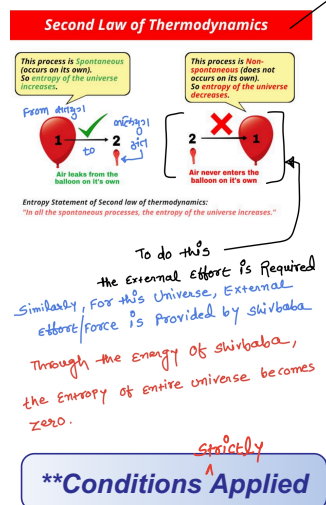 Second Law of Thermodynamics
This process is Spontaneous
(occurs on its own).
So entropy of the universe
increases.
This process is Non-
spontaneous (does not
occurs on its own).
So entropy of the universe
decreases.
From सतयुग
कलियुग
अंत
1 to 2
2 1
Air leaks from the
balloon on it's own
Air never enters the
balloon on it's own
Entropy Statement of Second law of thermodynamics:
"In all the spontaneous processes, the entropy of the universe increases."
To do this
the External Effort is Required
Similarly, For this Universe, External
Effort/Force is Provided by Shivbaba
Through the Energy of Shivbaba,
the Entropy of Entire universe becomes
zero.
Strictly
**Conditions Applied